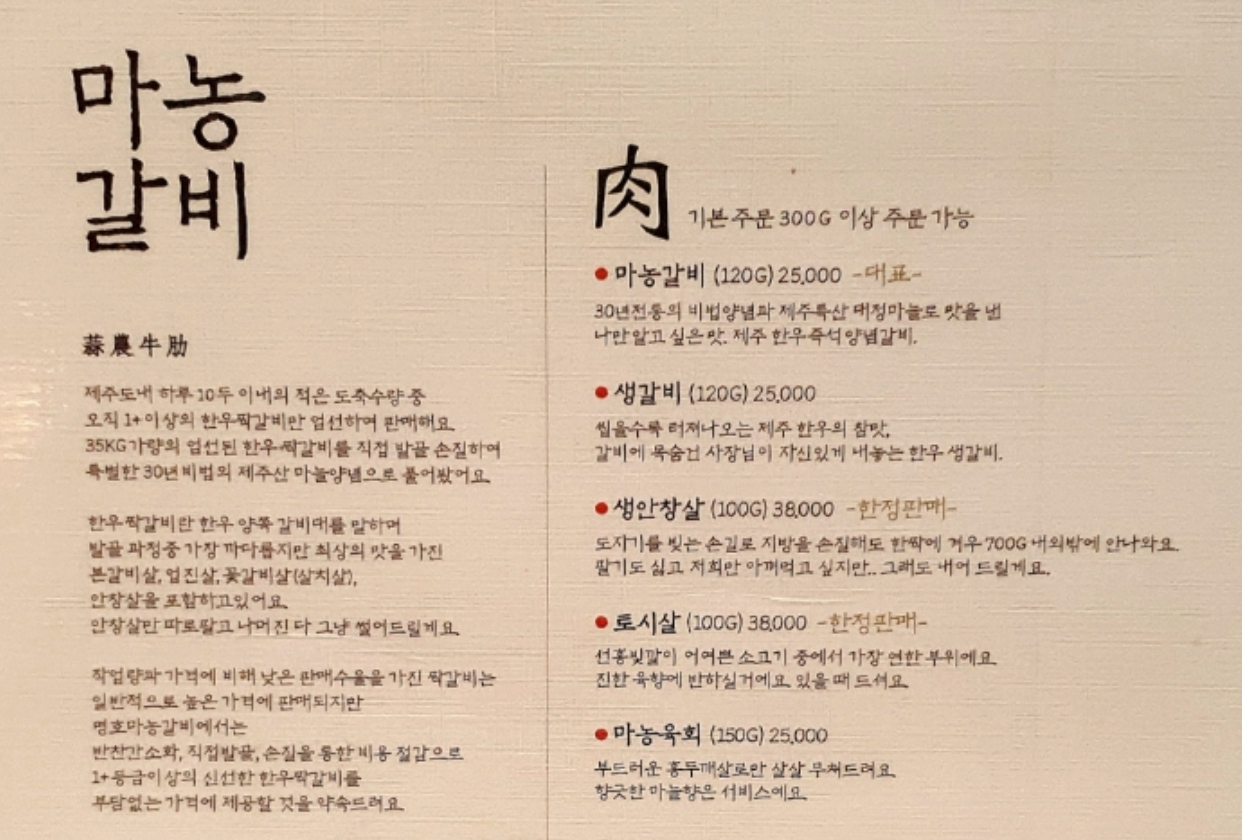 마농
갈비
蒜農牛肋
제주도내 하루 10두 이내의 적은 도축수량 중
오직 1+이상의 한우짝갈비만 엄선하여 판매해요.
35KG가량의 엄선된 한우짝갈비를 직접 발골 손질하여
특별한 30년 비법의 제주산 마늘양념으로 풀어봤어요.
한우짝갈비란 한우 양쪽 갈비대를 말하며
발골 과정중 가장 까다롭지만 최상의 맛을 가진
본갈비살, 업진살, 꽃갈비살(살치살),
안창살을 포함하고있어요.
안창살만 따로팔고 나머진 다 그냥 썰어드릴게요.
작업량과 가격에 비해 낮은 판매수율을 가진 짝갈비는
일반적으로 높은 가격에 판매되지만
명호마농갈비에서는
반찬간소화, 직접발골, 손질을 통한 비용 절감으로
1+등급이상의 신선한 한우짝갈비를
부담없는 가격에 제공할 것을 약속드려요.
肉 기본 주문 300G 이상 주문 가능
마농갈비 (120G) 25,000 -대표-
30년전통의 비법양념과 제주특산 대정마늘로 맛을 낸
나만 알고 싶은 맛. 제주 한우즉석양념갈비.
생갈비 (120G) 25,000
씹을수록 터져나오는 제주 한우의 참맛,
갈비에 목숨건 사장님이 자신있게 내놓는 한우 생갈비.
생안창살 (100G) 38,000 -한정판매-
도자기를 빚는 손길로 지방을 손질해도 한짝에 겨우 700G 내외밖에 안나와요.
팔기도 싫고 저희만 아껴먹고 싶지만.. 그래도 내어 드릴게요.
토시살 (100G) 38,000 -한정판매-
선홍빛깔이 어여쁜 소고기 중에서 가장 연한 부위에요.
진한 육향에 반하실거에요. 있을 때 드셔요.
마농육회 (150G) 25,000
부드러운 홍두깨살로만 살살 무쳐드려요.
향긋한 마늘향은 서비스에요.